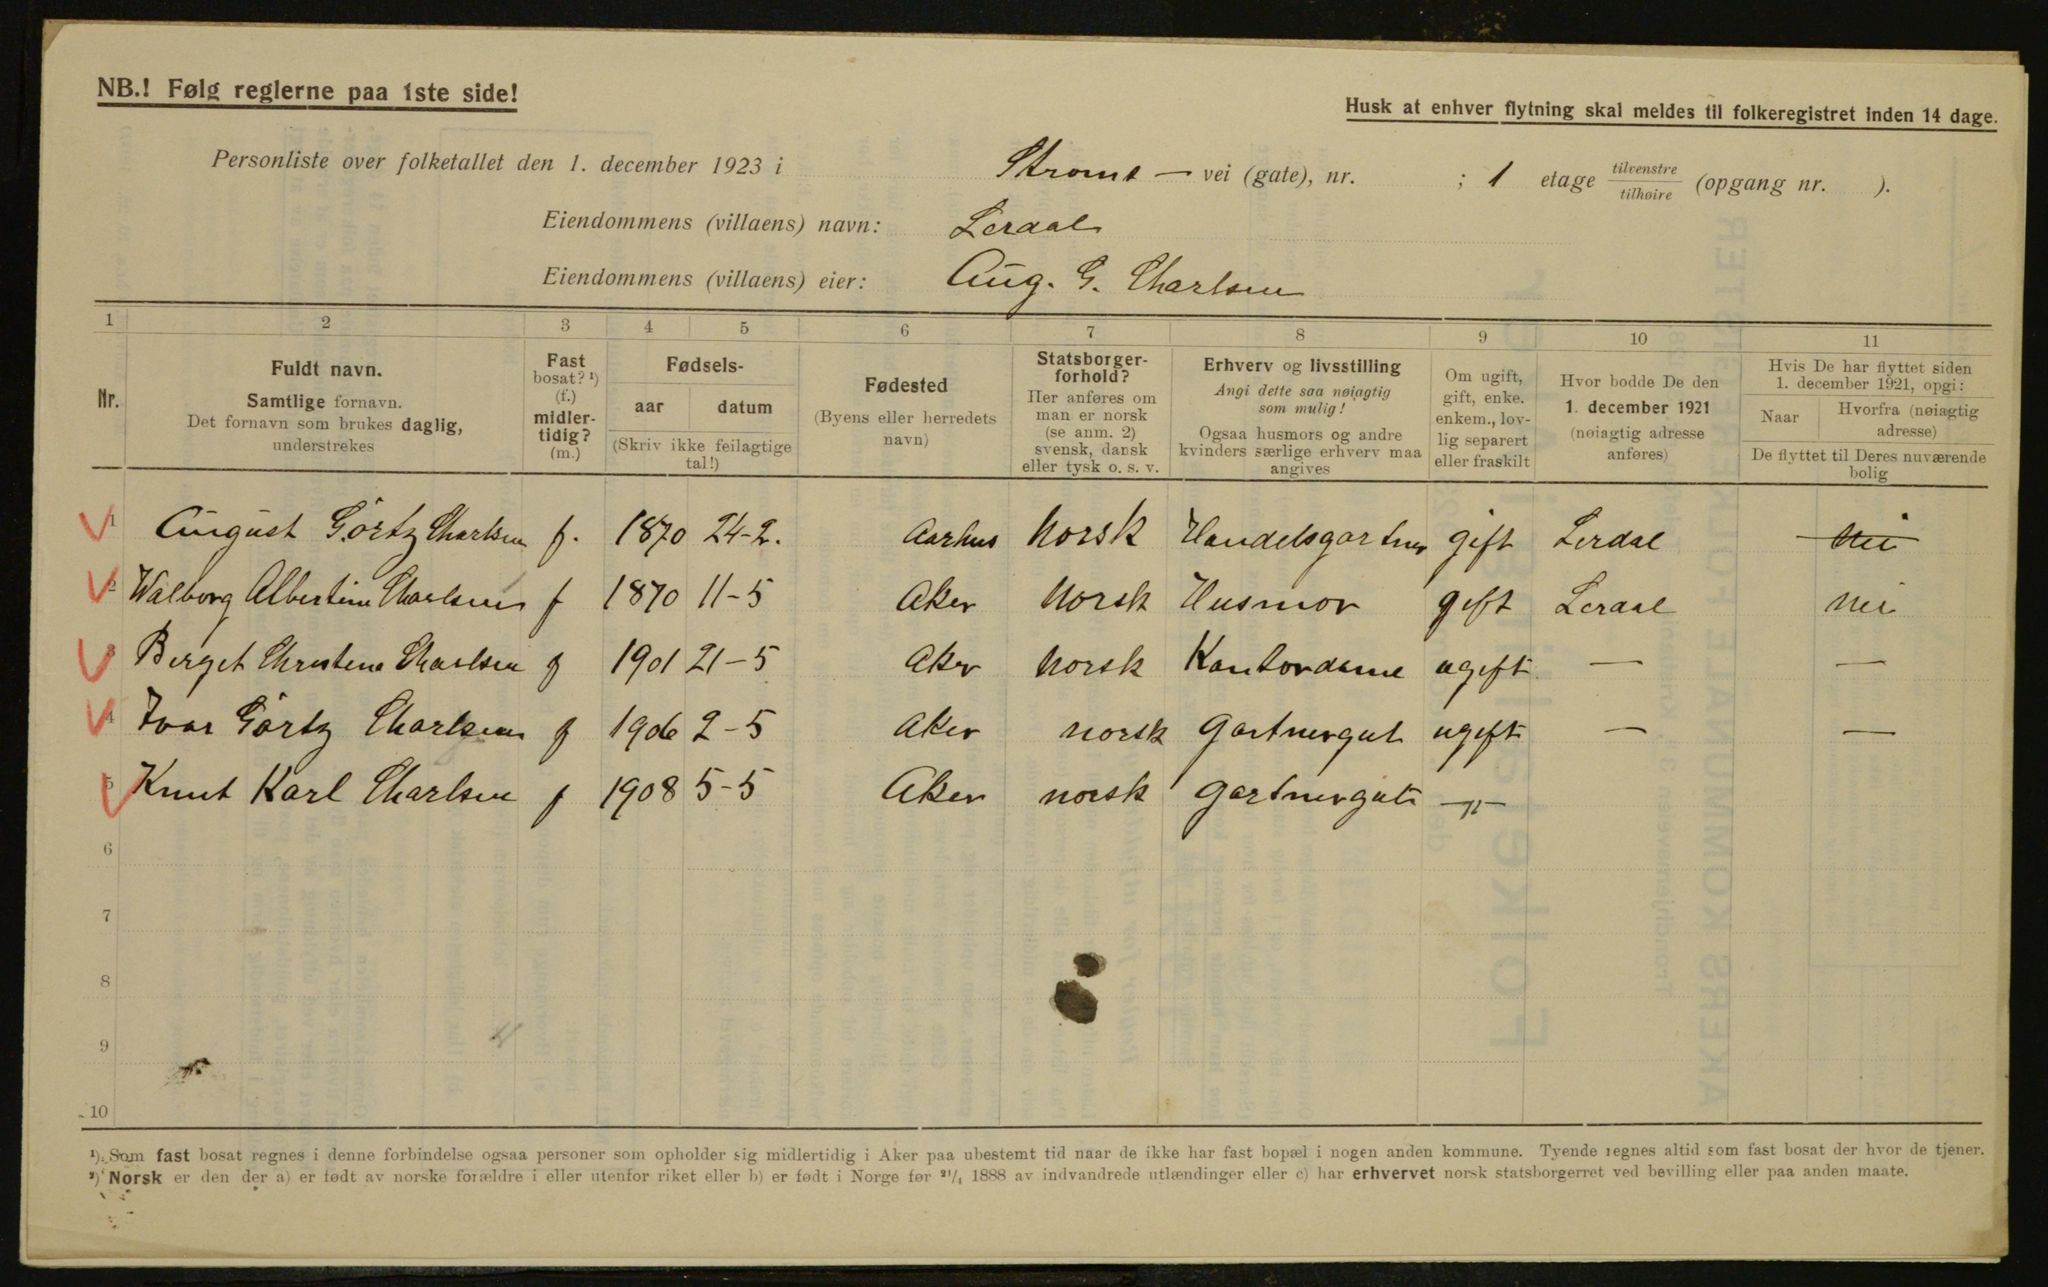 NB.! Følg reglerne paa 1ste side!
Husk at enhver flytning skal meldes til folkeregistret inden 14 dage.
Personliste over folketallet den 1. december 1923 i Stroms — vei (gate), nr. ; 1 etage tilvenstre/tilhøire (opgang nr. ).
Eiendommens (villaens) navn: Lerdal
Eiendommens (villaens) eier: Aug. G. Charlsen
1 2 3 4 5 6 7 8 9 10 11
Nr.
Fuldt navn.
Samtlige fornavn.
Det fornavn som brukes daglig,
understrekes
Fast
bosat? ¹)
(f.)
midler-
tidig?
(m.)
Fødsels-
aar datum
(Skriv ikke feilagtige
tal!)
Fødested
(Byens eller herredets
navn)
Statsborger-
forhold?
Her anføres om
man er norsk
(se anm. 2)
svensk, dansk
eller tysk o. s. v.
Erhverv og livsstilling
Angi dette saa nøiagtig
som mulig!
Ogsaa husmors og andre
kvinders særlige erhverv maa
angives
Om ugift,
gift, enke.
enkem., lov-
lig separert
eller fraskilt
Hvor bodde De den
1. december 1921
(nøiagtig adresse
anføres)
Hvis De har flyttet siden
1. december 1921, opgi:
Naar Hvorfra (nøiagtig
adresse)
De flyttet til Deres nuværende
bolig
1 August Görtz Charlsen f. 1870 24-2. Aarhus Norsk Handelsgartner gift Lerdal nei
2 Walborg Albertine Charlsen f 1870 11-5 Aker Norsk Husmor gift Lerdal nei
3 Berget Christine Charlsen f 1901 21-5 Aker Norsk Kontordame ugift — —
4 Ivar Görtz Charlsen f 1906 2-5 Aker norsk Gartnergut ugift — —
5 Knut Karl Charlsen f 1908 5-5 Aker norsk Gartnergut —"—
6
7
8
9
10
¹) Som fast bosat regnes i denne forbindelse ogsaa personer som opholder sig midlertidig i Aker paa ubestemt tid naar de ikke har fast bopæl i nogen anden kommune. Tyende regnes altid som fast bosat der hvor de tjener.
²) Norsk er den der a) er født av norske forældre i eller utenfor riket eller b) er født i Norge før ²¹/₄ 1888 av indvandrede utlændinger eller c) har erhvervet norsk statsborgerret ved bevilling eller paa anden maate.